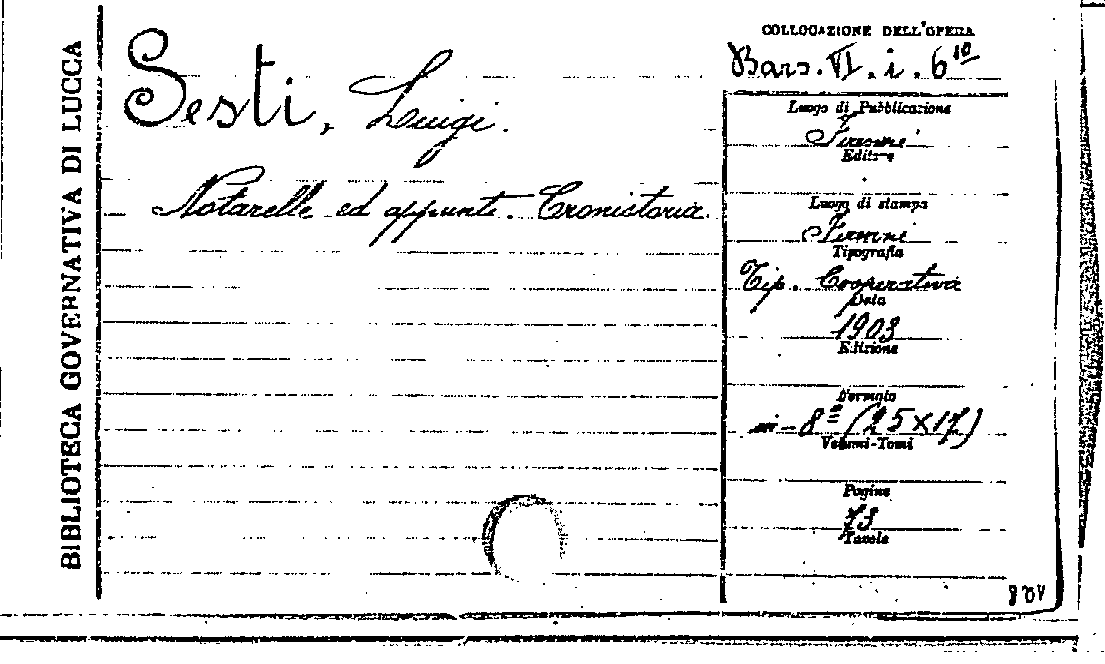 BIBLIOTECA GOVERNATIVA DI LUCCA
Sesti, Luigi.
Notarelle ed appunti. Cronistoria.
COLLOCAZIONE DELL'OPERA
Bars. VI. i. 6¹⁰
Luogo di Pubblicazione
Editore
Luogo di stampa
Tipografia
Tip. Cooperativa
Data
1903
Edizione
Formato
in-8° (25X17)
Volumi-Tomi
Pagine
73
Tavole